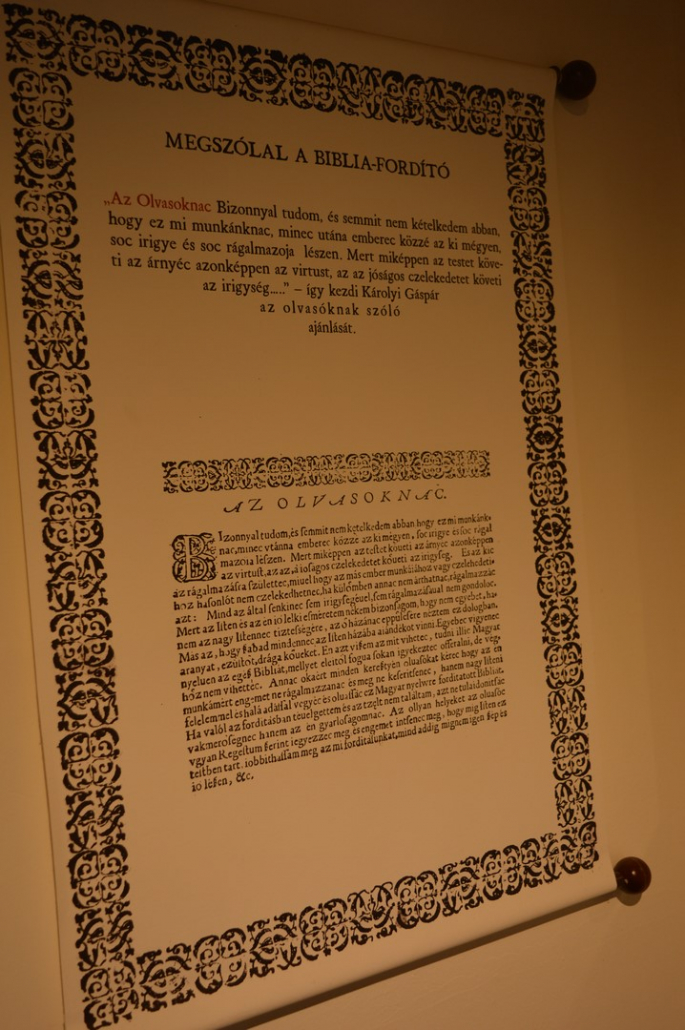 MEGSZÓLAL A BIBLIA-FORDÍTÓ
„Az Olvasoknac Bizonnyal tudom, és semmit nem kételkedem abban,
hogy ez mi munkánknac, minec utána emberec közzé az ki mégyen,
soc irigye és soc rágalmazoja lészen. Mert miképpen az testet köve-
ti az árnyéc azonképpen az virtust, az az jóságos czelekedetet követi
az irigység....." – így kezdi Károlyi Gáspár
az olvasóknak szóló
ajánlását.
AZ OLVASOKNAC.
BIzonnyal tudom, és semmit nem ketelkedem abban hogy ez mi munkánk-
nac, minec vtánna emberec közzè az ki mégyen, soc irigye es soc rágal
mazoia leszen. Mert miképpen az testet köueti az árnyec azonképpen
az virtust, az az, á iosagos czelekedetet köueti az irigyseg. Es az kic
az rágalmazásra születtec, miuel hogy az más ember munkáiához vagy czelekedeti-
hez hasonlót nem czelekedhetnec, ha külömben annac nem árthatnac, rágalmazzac
azt: Mind az által senkinec sem irigysegéuel, sem rágalmazásáual nem gondoloc.
Mert az Isten és az en io lelki esméretem nékem bizonságom, hogy nem egyebet, ha-
nem az nagy Istennec tiztességére, az ö házánac eppülésere neztem ez dologban.
Más az, hogy szabad mindennec az Isten házába aiándékot vinni. Egyebec vigyenec
aranyat, ezüstöt, drága köueket. En azt viszem az mit vihetec, tudni illic Magyar
nyeluen az egesz Bibliát, mellyet
hoz nem vihettéc. Annac okáért minden keresztyén oluasókat kérec hogy az én
munkámért engemet ne rágalmazzanac és meg ne keserítsenec, hanem nagy isteni
felelemmel és hálá adással vegyéc és oluassác ez Magyar nyelwre fordítatott Bibliát.
Ha valól az fordításban téuelgettem és az tzelt nem találtam, azt ne tulaidonítsác
vakmerosegnec hanem az én gyarlosagomnac. Az ollyan helyeket az oluasóc
vgyan Regestum szerint iegyezzec meg és engemet intsenec meg, hogy mig Isten ez
testben tart, iobbíthassam meg az mi fordításunkat, mind addig mignem igen szép és
io leszen, &c.